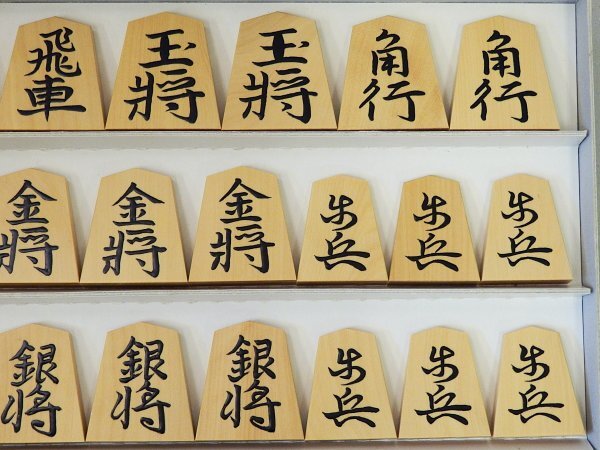 飛車 玉将 玉将 角行 角行
金将 金将 金将 歩兵 歩兵 歩兵
銀将 銀将 銀将 歩兵 歩兵 歩兵